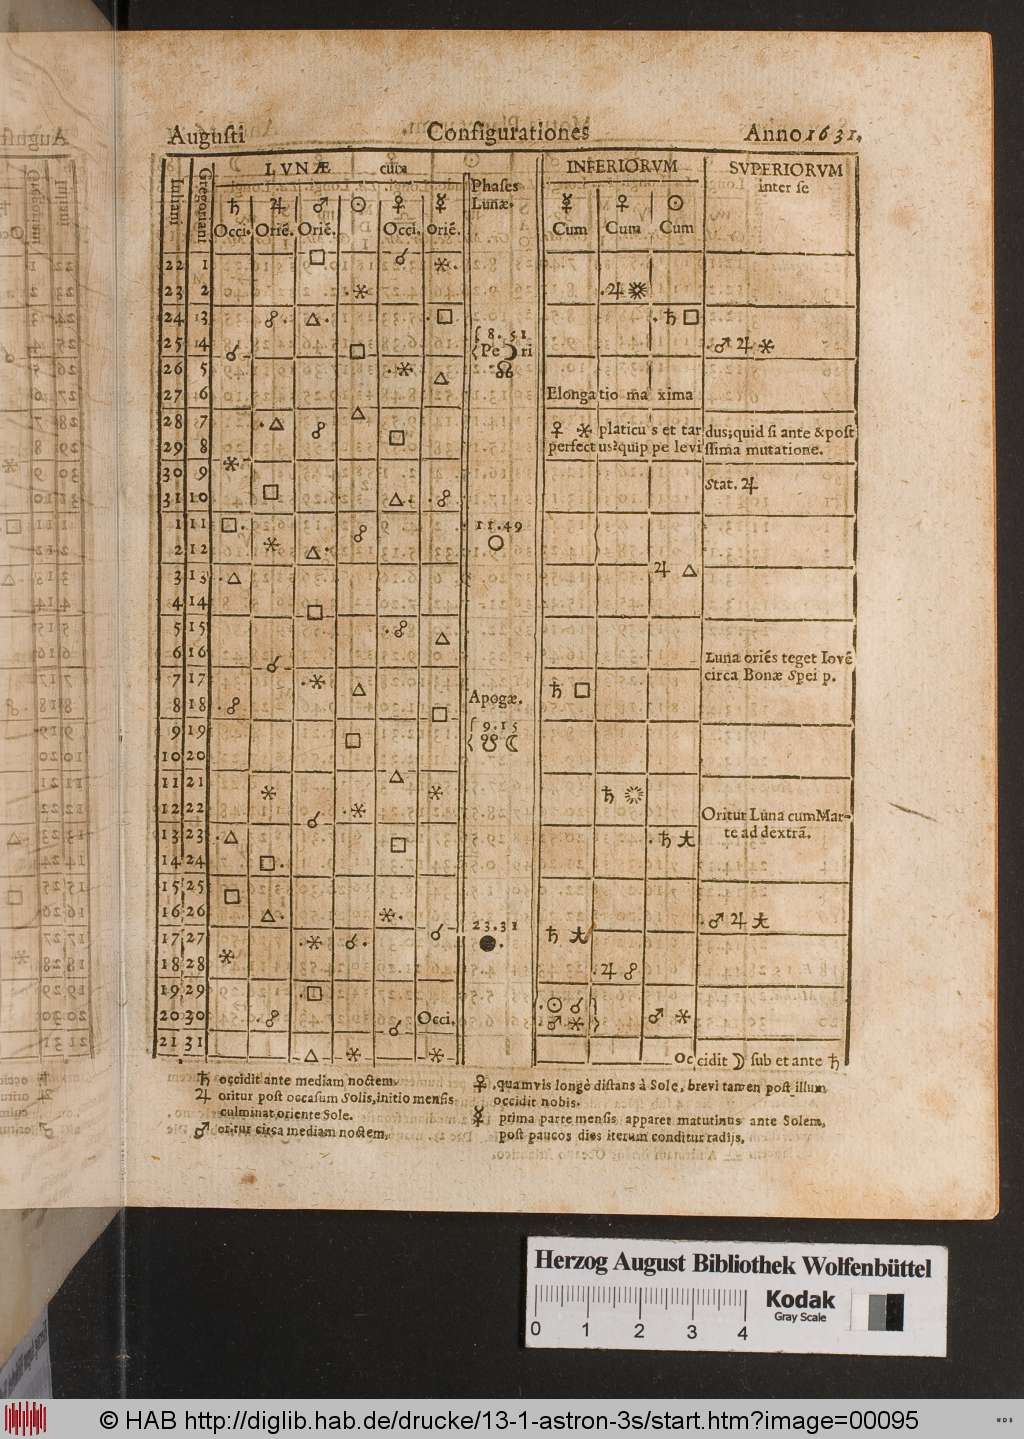 Augusti Configurationes Anno 1631.
LVNÆ cum INFERIORVM SVPERIORVM
inter se
Iuliani Gregoriani ♄ ♃ ♂ ☉ ♀ ☿ Phases Lunæ. ☿ ♀ ☉
Occi. Oriẽ. Oriẽ. Occi. Oriẽ. Cum Cum Cum
22 1 □ ☌ ⚹.
23 2 .⚹ .♃ ⚹
24 3 ☍. △. .□ .♄ □
8. 51
25 4 ☌ □ Pe ☽ ri .♂ ♃ ⚹
26 5 .⚹ △ ☊
27 6 Elongatio mã xima
28 7 .△ ☍ △ □ ♀ ⚹ platicus et tardus; quid si ante & post
29 8 ⚹ perfectus? quippe levissima mutatione.
30 9 Stat. ♃
31 10 □ △. .☍
1 11 □. ☍ 11.49
2 12 ⚹ △. ○
3 13 .△ ♃ △
4 14 □
5 15 .☍ △
6 16 ☌ Luna oriẽs teget Iovẽ
7 17 .⚹ △ ♄ □ circa Bonæ Spei p.
8 18 .☍ □ Apogæ.
9 19 □ 9.15
10 20 ☋ ☾
11 21 ⚹ △ ⚹ ♄
12 22 ☌ .⚹ Oritur Luna cum Mar-
13 23 .△ □ .♄ te ad dextrã.
14 24 □.
15 25 □
16 26 △. ⚹. ☌ 23.31 .♂ ♃
17 27 .⚹ ☌. ●. ♄
18 28 ⚹ .♃ ☍
19 29 .□ .☉ ☌
20 30 .☍ ☌ Occi. .♂ ⚹ ♂ ⚹
21 31 △ ⚹ ⚹ Occidit ☽ sub et ante ♄
♄ occidit ante mediam noctem.
♃ oritur post occasum Solis, initio mensis
culminat oriente Sole.
♂ oritur circa mediam noctem,
♀ , quamvis longè distans à Sole, brevi tamen post illum
occidit nobis.
☿ prima parte mensis apparet matutinus ante Solem,
post paucos dies iterum conditur radijs,
Herzog August Bibliothek Wolfenbüttel
0 1 2 3 4
Kodak
Gray Scale
© HAB http://diglib.hab.de/drucke/13-1-astron-3s/start.htm?image=00095